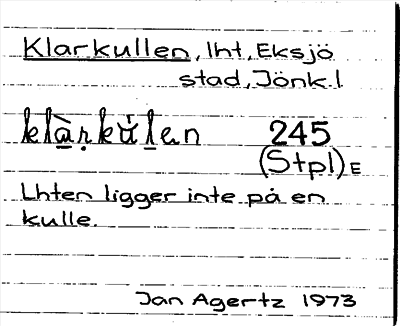 Klarkullen, lht, Eksjö
stad, Jönk.l
klàṛku̇́l̲ən 245
(Stpl) E
Lhten ligger inte på en
kulle.
Jan Agertz 1973